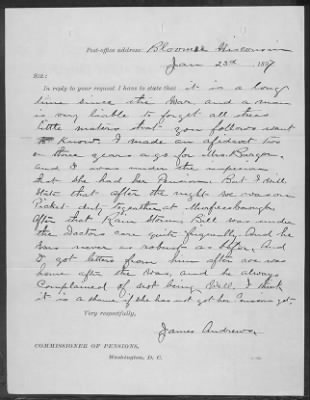 Post-office address: Bloomer Wisconsin
Jan 23rd, 1897
SIR:
In reply to your request I have to state that it is a long
time since the War, and a man
is very liable to forget all these
little matters that you follows want
to know. I made an afidant two
or three years ago for Mrs.
and I was under the
that She had her Pension. But I will
State that after the night we was on
Picket duty together at Murfreesborough,
after that Rain Storm Bill was under
the Doctors care quite friqually. And he
was never as robust as before. And
I got letters from him after we was
home after the War, and he always
Complained of not being Well. I think
it is a shame if she has not got her Pension yet.
Very respectfully,
James Andrews.
COMMISSIONER OF PENSIONS,
Washington, D. C.